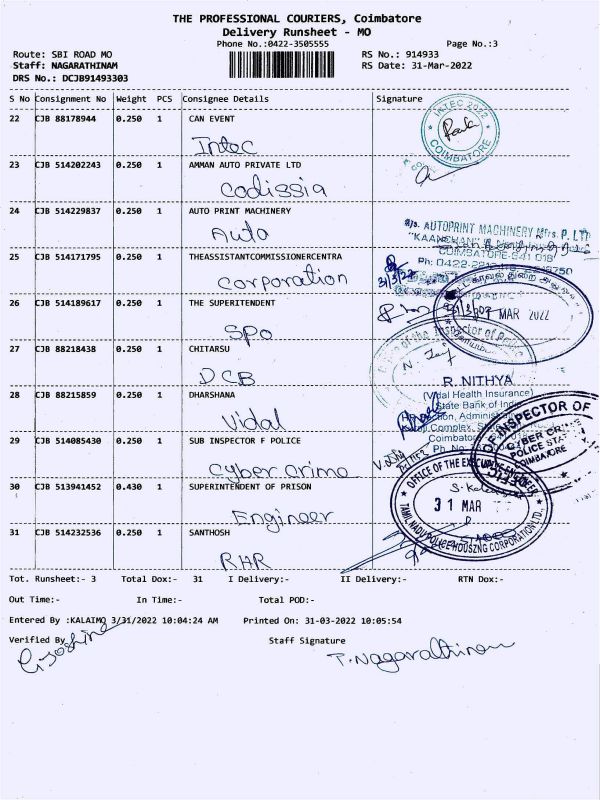 THE PROFESSIONAL COURIERS, Coimbatore
Delivery Runsheet - MO
Phone No.:0422-3505555
Page No.:3
Route: SBI ROAD MO
RS No.: 914933
Staff: NAGARATHINAM
RS Date: 31-Mar-2022
DRS No.: DCJB91493303
S No Consignment No Weight PCS Consignee Details Signature
22 CJB 88178944 0.250 1 CAN EVENT
Intec
INTEC 2022
COIMBATORE
23 CJB 514202243 0.250 1 AMMAN AUTO PRIVATE LTD
Codissia
24 CJB 514229837 0.250 1 AUTO PRINT MACHINERY
Auto
AUTOPRINT MACHINERY Mfrs. P. LTD
COIMBATORE-641 018
25 CJB 514171795 0.250 1 THEASSISTANTCOMMISSIONERCENTRA
Corporation
Ph: 0422-
26 CJB 514189617 0.250 1 THE SUPERITENDENT
SPO
MAR 2022
27 CJB 88218438 0.250 1 CHITARSU
DCB
of the Inspector of Police
28 CJB 88215859 0.250 1 DHARSHANA
Vidal
R. NITHYA
(Vidal Health Insurance)
State Bank of India
Complex,
Coimbatore
Ph. No.
29 CJB 514085430 0.250 1 SUB INSPECTOR F POLICE
Cyber Crime
INSPECTOR OF
CYBER CRIME
POLICE STATION
COIMBATORE
30 CJB 513941452 0.430 1 SUPERINTENDENT OF PRISON
Engineer
OFFICE OF THE EXECUTIVE ENGINEER
31 MAR
TAMIL NADU POLICE HOUSING CORPORATION LTD.
31 CJB 514232536 0.250 1 SANTHOSH
RHR
Tot. Runsheet:- 3 Total Dox:- 31 I Delivery:- II Delivery:- RTN Dox:-
Out Time:- In Time:- Total POD:-
Entered By :KALAIMO 3/31/2022 10:04:24 AM Printed On: 31-03-2022 10:05:54
Verified By
Staff Signature
T. Nagarathinam